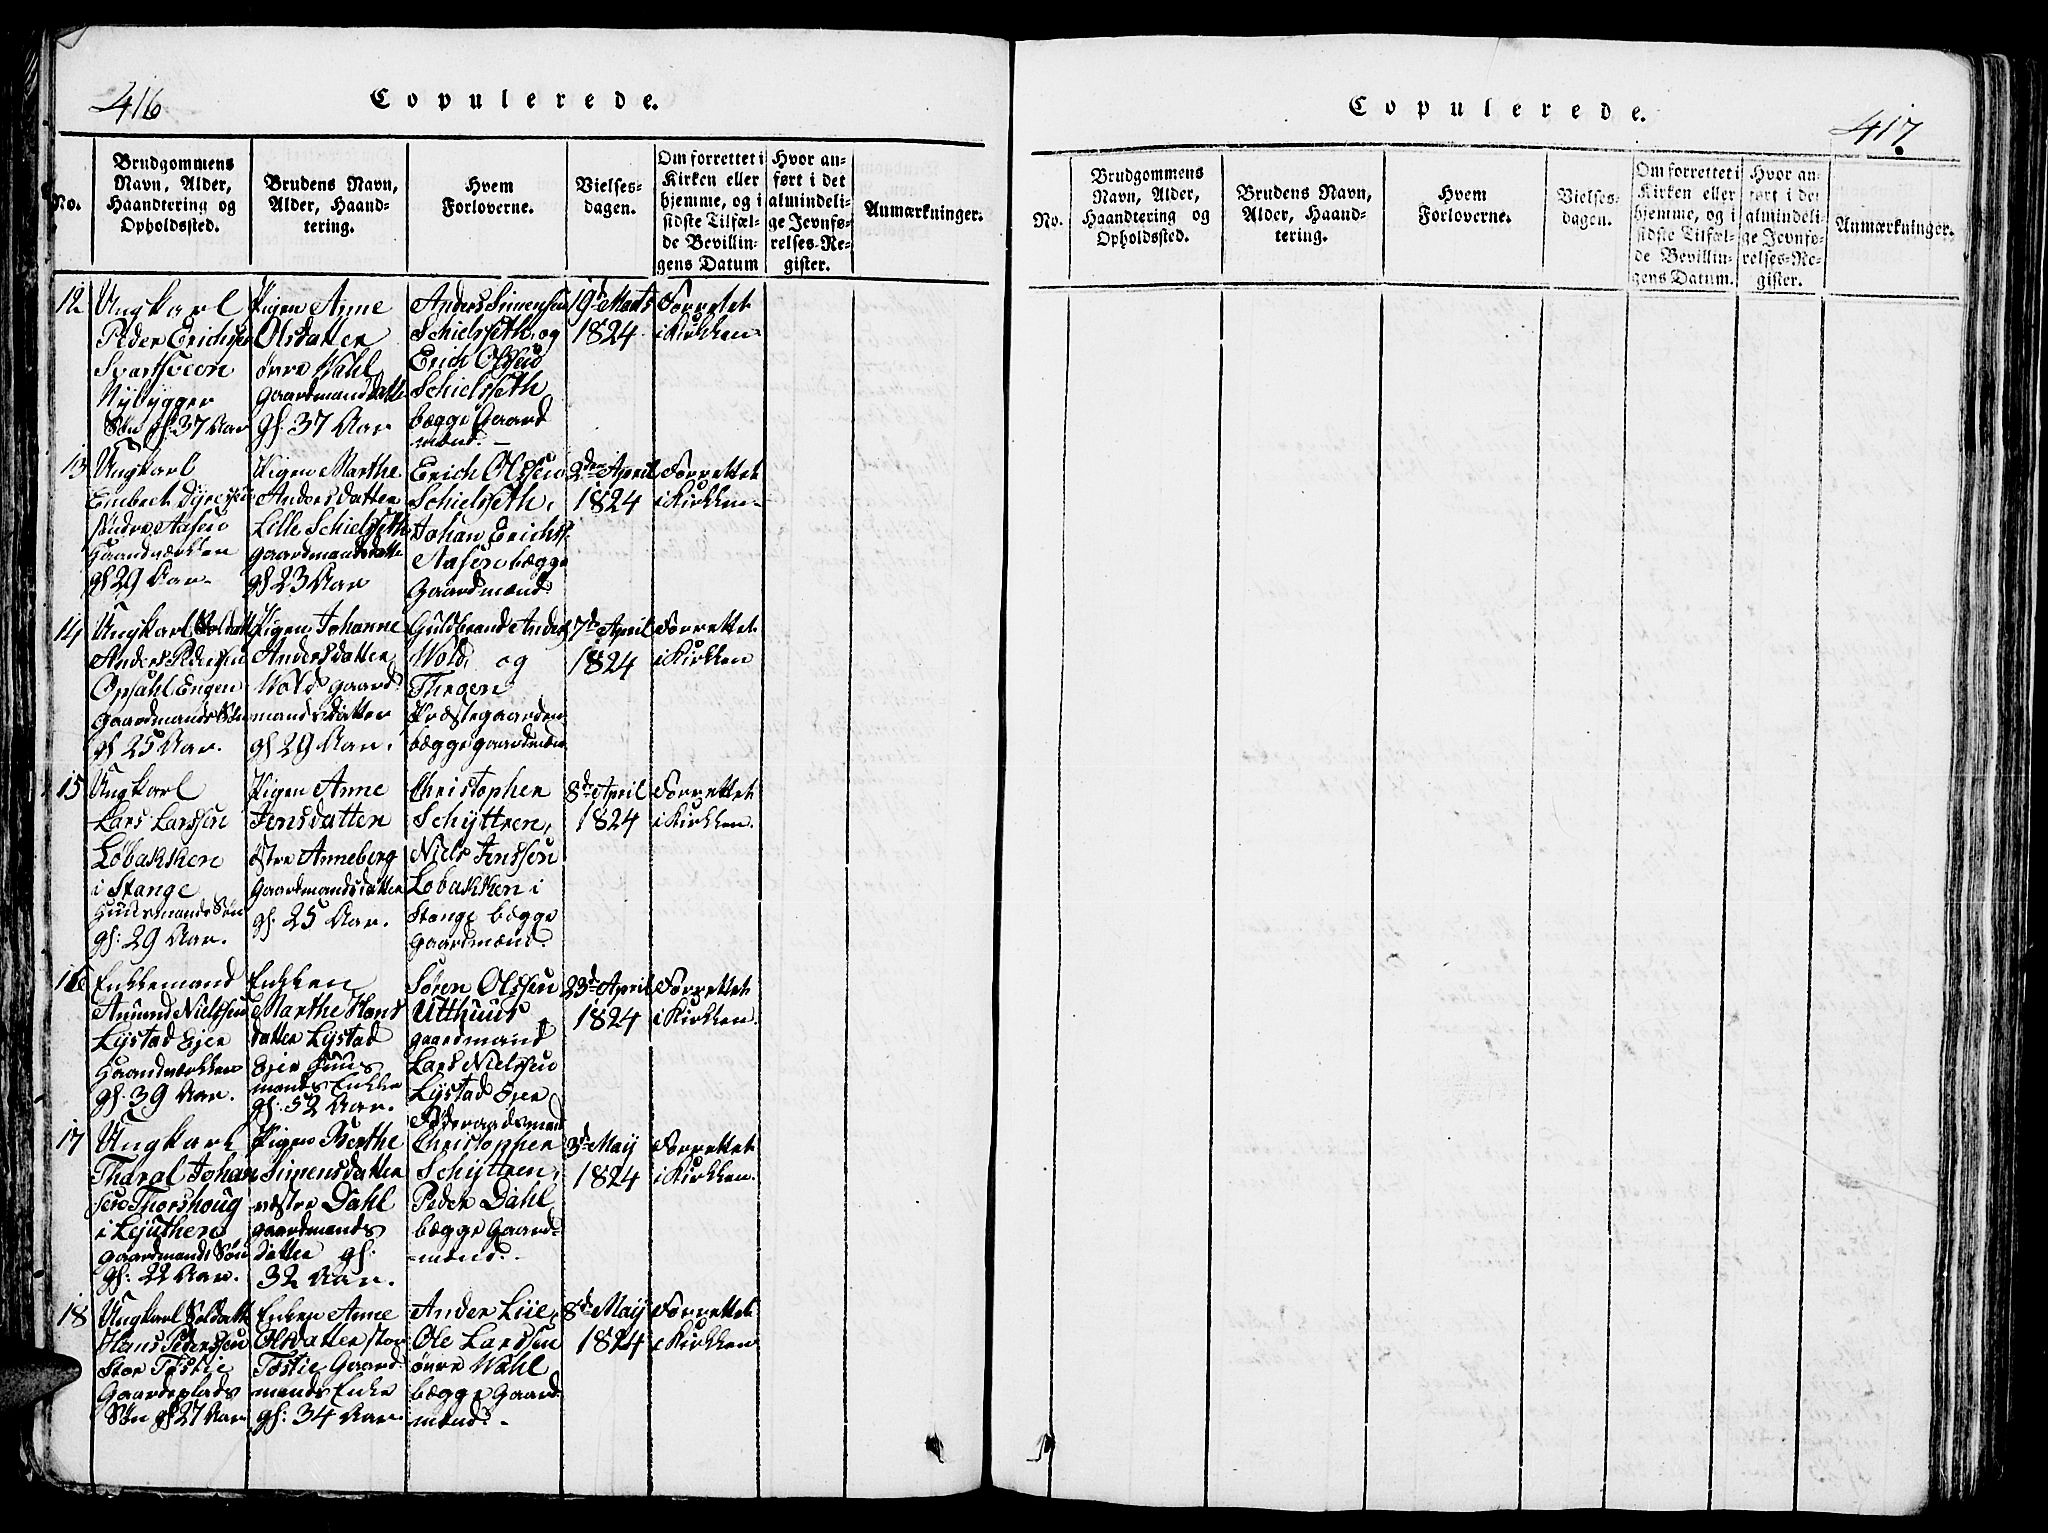 416
Copulerede.
No.
Brudgommens
Navn, Alder,
Haandtering og
Opholdssted.
Brudens Navn,
Alder, Haand-
tering.
Hvem
Forloverne.
Vielses-
dagen.
Om forrettet i
Kirken eller
hjemme, og i
sidste Tilfæl-
de Bevillin-
gens Datum
Hvor an-
ført i det
almindeli-
ge Jevnfø-
relses-Re-
gister.
Anmærkninger.
12
Ungkarl
Peder Erichsen
Nybygger
Søn gl: 37 Aar
Pigen Anne
Olsdatter
øvre Wahl
Gaardmandsdatte
gl: 37 Aar
Anders Simensen
Schielsseth, og
Erich Olssen
Schielsseth
bægge Gaard
mænd. -
19d Marts
1824
Forretet
i Kirkken
13
Ungkarl
Embret Dyresen
Søndre Aasen
Haandværkker
gl 29 Aar
Pigen Marthe
Andersdatter
Lille Schielsseth
Gaardmandsdatte
gl 23 Aar
Erich Olssen
Schielsseth,
Johan Erichs-
Aasen bægge
Gaardmænd
2den April
1824
Forrettet
i Kirkken
14
Ungkarl Soldat
Anders Pedersen
Opsahl Engen
Gaardmands Søn
gl 25 Aar.
Pigen Johanne
Andersdatter
Wold Gaard
mandsdatter
gl 29 Aar.
Guldbrand Anders
Wold og
Præstegaarden
bægge gaardmænd
7de April
1824
Forrettet
i Kirkken
15
Ungkarl
Lars Larssen
Løbakken
i Stange
Huusmands Søn
gl: 29 Aar.
Pigen Anne
Jensdatter
østre Anneberg
Gaardmandsdatter
gl. 25 Aar.
Christopher
Schyttren,
Niels Jenssen
Løbakken i
Stange bægge
Gaardmænd.
8de April
1824
Forrettet
i Kirkken.
16
Enkkemand
Amund Nielssen
Lystad Ejer
Haandværkker
gl: 39 Aar.
Enkken
Marthe Hans
datter Lystad
Ejer Huus
mands Enkke
gl: 52 Aar.
Søren Olssen
Utthuus
Gaardmand
Lars Nielssen
Lystad Ejer
Føderaadsmand
23d April
1824
Forrettet
i Kirkken.
17
Ungkarl
Tharal Johan
sen Thorshoug
i Løjthen
Gaardmands Søn
gl: 22 Aar.
Pigen Berthe
Simensdatter
vestre Dahl
Gaardmands
datter gl:
32 Aar.
Christopher
Schyttren,
Peder Dahl
bægge Gaard-
-mænd.
3d May
1824
Forrettet
i Kirkken.
18
Ungkarl Soldat
Hans Pederssen
Stor Tøstie
Gaardsplads
Søn gl 27 Aar
Enken Anne
Olsdatter stor
Tøstie Gaard
mands Enke
gl: 34 Aar.
Ander Liie,
Ole Larssen
øvre Wahl
bægge Gaard
mænd. -
8d May
1824
Forrettet
i Kirkken
Copulerede.
417
No.
Brudgommens
Navn, Alder,
Haandtering og
Opholdssted.
Brudens Navn,
Alder, Haand-
tering.
Hvem
Forloverne.
Vielses-
dagen.
Om forrettet i
Kirken eller
hjemme, og i
sidste Tilfæl-
de Bevillin-
gens Datum.
Hvor an-
ført i det
almindeli-
ge Jevnfø-
relses-Re-
gister.
Anmærkninger.